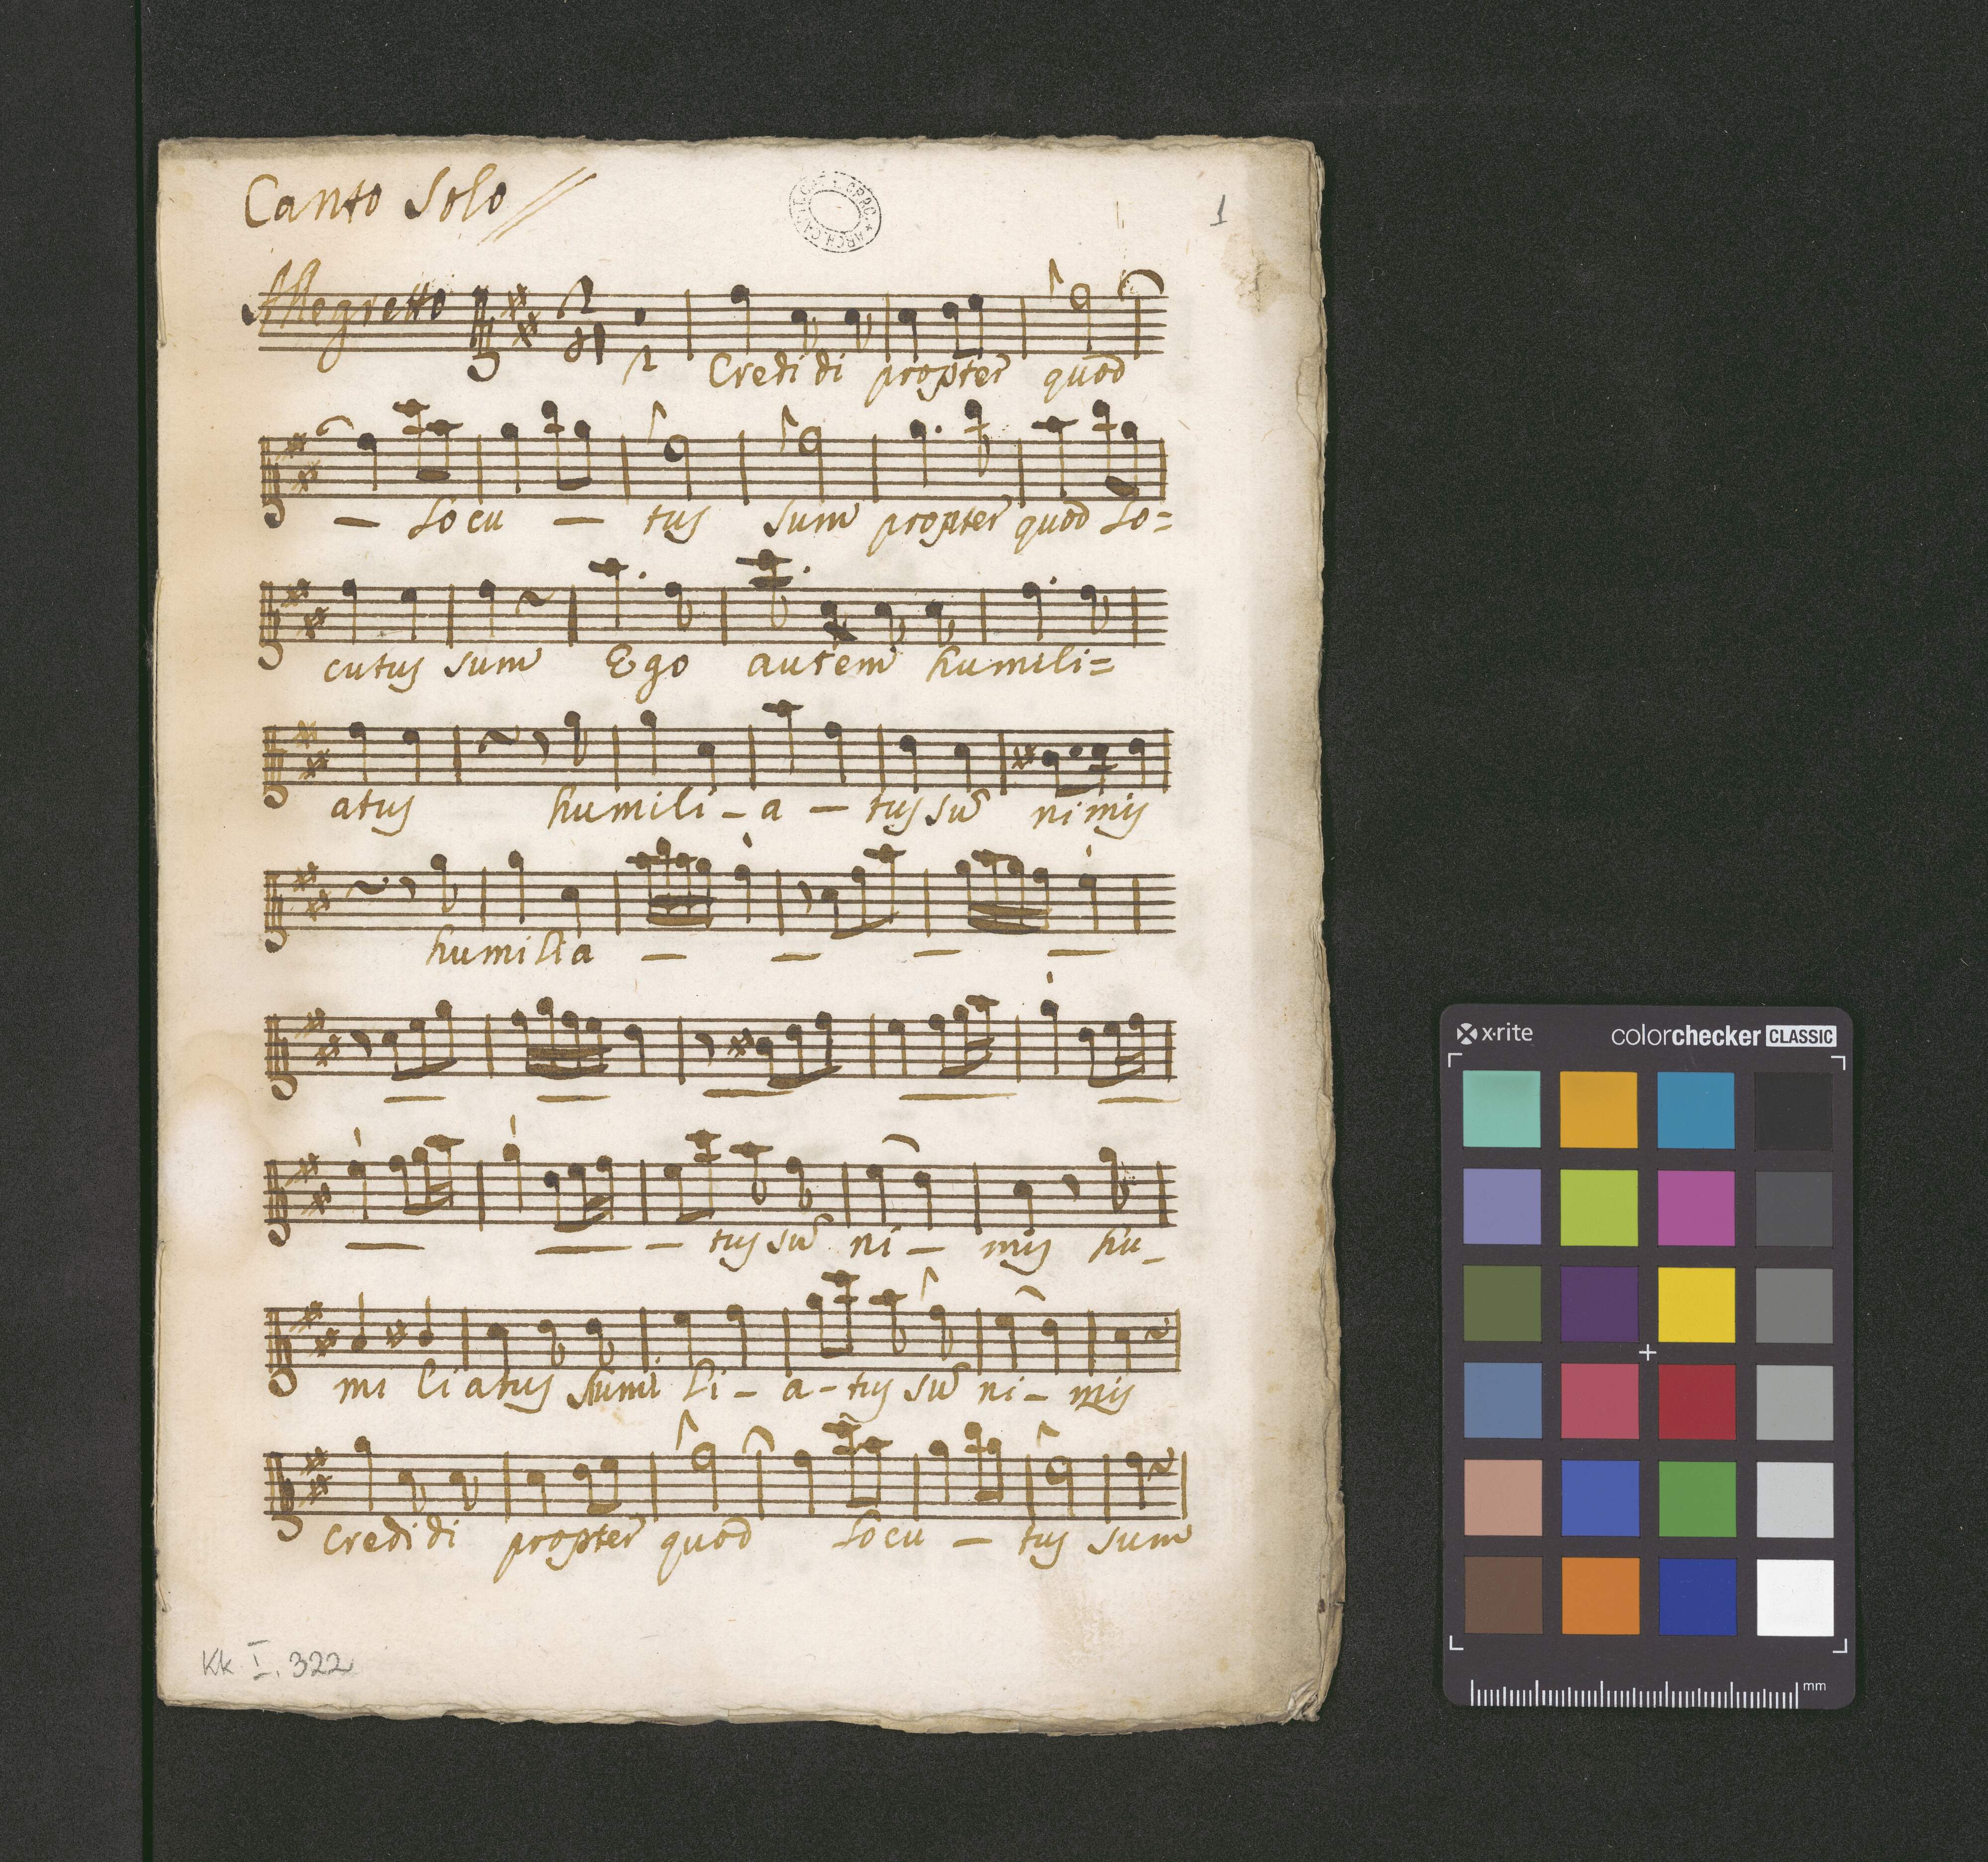 Canto Solo
1
Allegretto
2
Credidi propter quod
Locu - tus sum propter quod Lo=
cutus sum Ego autem humili=
atus humili - a - tus sū nimis
humilia
tus sū ni - mis hu-
mi liatus humi li - a - tus sū ni - mis
credidi propter quod Locu - tus sum
Kk I. 322
x·rite colorchecker CLASSIC
mm